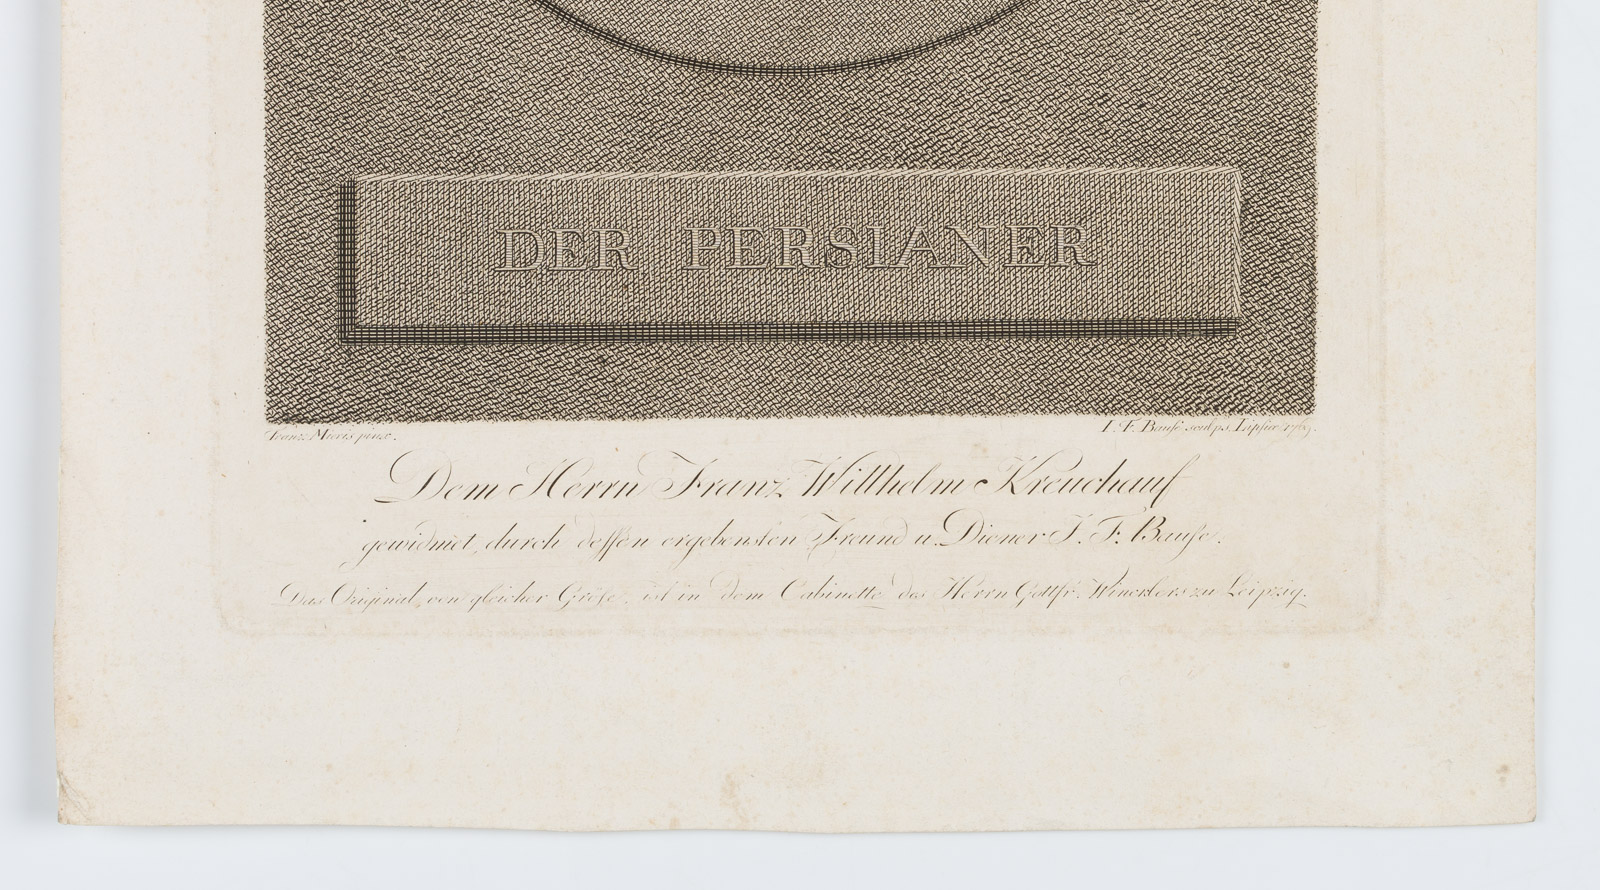 DER PERSIANER
Franz Mieris pinx. I. F. Bause sculps. Lipsiae 1769.
Dem Herrn Franz Willhelm Kreuchauf
gewidmet durch dessen ergebensten Freund u. Diener J. F. Bause.
Das Original, von gleicher Gröse, ist in dem Cabinette des Herrn Gottfr. Wincklers zu Leipzig.